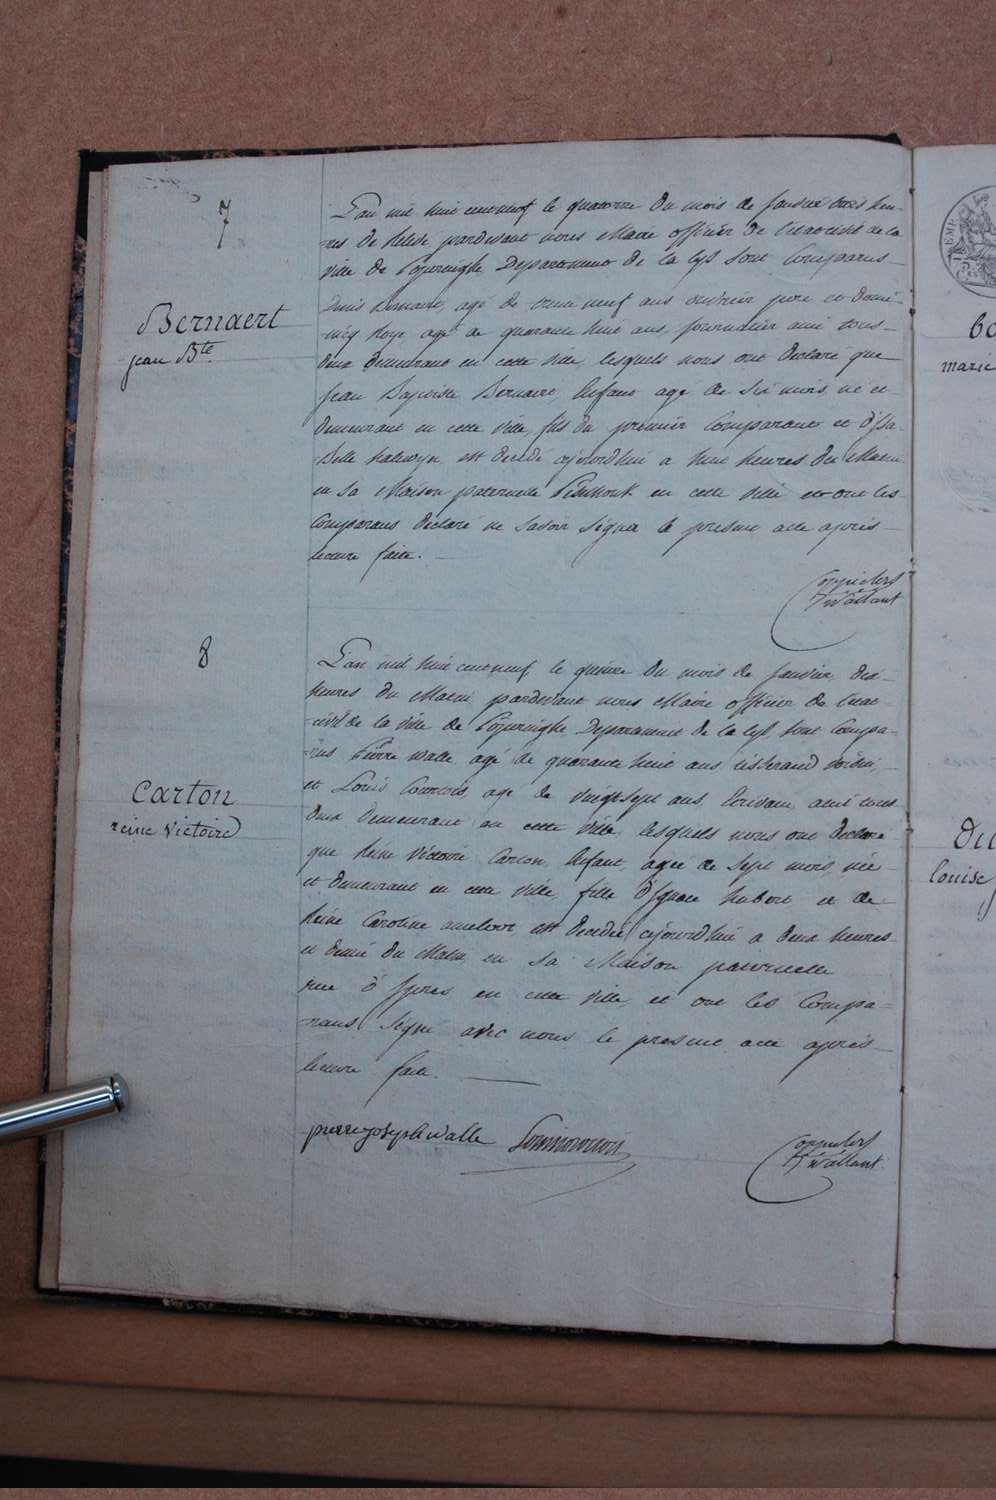 7
Bernaert
jean Bte
L'an mil huit cent neuf le quatorze du mois de janvier onze heu-
-res de relevé pardevant nous Maire officier de l'état civil de la
ville de Poperinghe Departement de la Lys sont Comparus
Denis Bernaert, agé de trente neuf ans ouvrier pere et Domi-
-nicq agé de quarante huit ans, journalier ami tous
deux demeurant en cette ville, lesquels nous ont declaré que
Jean Baptiste Bernaert, Enfant agé de six mois, né et
demeurant en cette ville, fils du premier Comparant et d'Isa-
-belle est decedé cejourd'hui a huit heures du Matin
en sa Maison paternelle en cette ville et ont les
Comparans declaré ne savoir signer le present acte après
lecture faite.
Coppieters
T' Wallant
8
Carton
reine Victoire
L'an mil huit cent neuf le quinze du mois de Janvier, dix
heures du Matin pardevant nous Maire officier de l'état
civil de la ville de Poperinghe Departement de la Lys, sont Compa-
-rus Pierre Walle agé de quarante huit ans tisserand voisin,
et Louis Courtois, agé de vingt sept ans, Ecrivain, ami tous
deux Demeurant en cette ville, lesquels nous ont declaré
que Reine Victoire Carton, Enfant, agée de sept mois, née
et demeurant en cette ville, fille d'Ignace hubert et de
Reine Caroline est decedée cejourd'hui a deux heures
et demie du Matin en sa Maison paternelle
rue d'Ypres en cette ville, et ont les Compa-
-rans signé avec nous le present acte après
lecture faite.
pierre joseph walle
Coppieters
T' Wallant
marie
louise